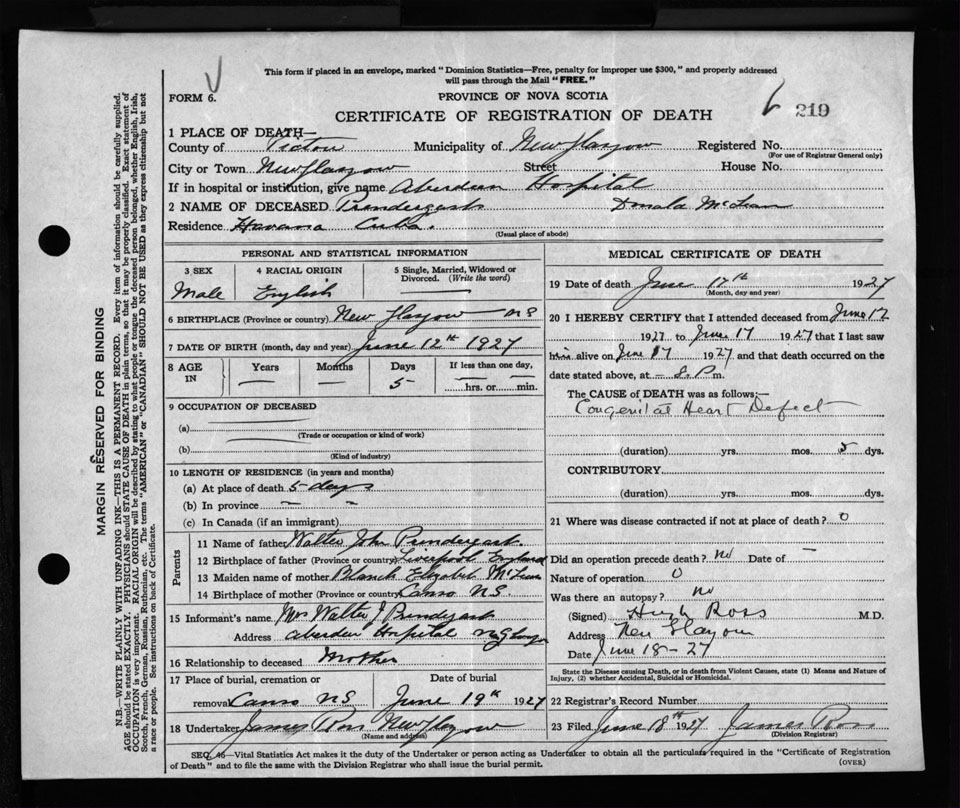 This form if placed in an envelope, marked "Dominion Statistics—Free, penalty for improper use $300," and properly addressed
will pass through the Mail "FREE."
FORM 6.
PROVINCE OF NOVA SCOTIA
CERTIFICATE OF REGISTRATION OF DEATH
6 219
1 PLACE OF DEATH—
County of Pictou Municipality of New Glasgow Registered No.
(For use of Registrar General only)
City or Town New Glasgow Street House No.
If in hospital or institution, give name Aberdeen Hospital
2 NAME OF DECEASED Prendergast Donald McLean
Residence Havana Cuba.
(Usual place of abode)
PERSONAL AND STATISTICAL INFORMATION
3 SEX 4 RACIAL ORIGIN 5 Single, Married, Widowed or Divorced. (Write the word)
Male English —
6 BIRTHPLACE (Province or country) New Glasgow NS
7 DATE OF BIRTH (month, day and year) June 12th 1927
8 AGE IN Years Months Days If less than one day,
— — 5 — hrs. or — min.
9 OCCUPATION OF DECEASED
(a)
(Trade or occupation or kind of work)
(b)
(Kind of industry)
10 LENGTH OF RESIDENCE (in years and months)
(a) At place of death 5 days
(b) In province — —
(c) In Canada (if an immigrant)
Parents
11 Name of father Walter John Prendergast.
12 Birthplace of father (Province or country) Liverpool England
13 Maiden name of mother Blanch Elizabet McLean
14 Birthplace of mother (Province or country) Canso NS.
15 Informant's name Mrs Walter J Prendergast
Address Aberdeen Hospital N Glasgow
16 Relationship to deceased Mother
17 Place of burial, cremation or removal Date of burial
Canso NS June 19th 1927
18 Undertaker James Ross New Glasgow
(Name and address)
MEDICAL CERTIFICATE OF DEATH
19 Date of death June 17th 1927
(Month, day and year)
20 I HEREBY CERTIFY that I attended deceased from June 12
1927 to June 17 1927 that I last saw
him alive on June 17 1927 and that death occurred on the
date stated above, at — 8. P m.
The CAUSE of DEATH was as follows:
Congenital Heart Defect
(duration) yrs. mos. 5 dys.
CONTRIBUTORY
(duration) yrs. mos. dys.
21 Where was disease contracted if not at place of death? 0
Did an operation precede death? No Date of —
Nature of operation 0
Was there an autopsy? no
(Signed) Hugh Ross M.D.
Address New Glasgow
Date June 18-27
State the Disease causing Death, or in death from Violent Causes, state (1) Means and Nature of
Injury, (2) whether Accidental, Suicidal or Homicidal.
22 Registrar's Record Number
23 Filed June 18th 1927 James Ross
(Division Registrar)
SEC. 46—Vital Statistics Act makes it the duty of the Undertaker or person acting as Undertaker to obtain all the particulars required in the "Certificate of Registration
of Death" and to file the same with the Division Registrar who shall issue the burial permit.
(OVER)
MARGIN RESERVED FOR BINDING
N.B.—WRITE PLAINLY WITH UNFADING INK—THIS IS A PERMANENT RECORD. Every item of information should be carefully supplied.
AGE should be stated EXACTLY. PHYSICIANS should STATE CAUSE OF DEATH in plain terms, so that it may be properly classified. Exact statement of
OCCUPATION is very important. RACIAL ORIGIN will be described by stating to what people or tongue the deceased person belonged, whether English, Irish,
Scotch, French, German, Russian, Ruthenian, etc. The terms "AMERICAN" or "CANADIAN" SHOULD NOT BE USED as they express citizenship but not
a race or people. See instructions on back of Certificate.